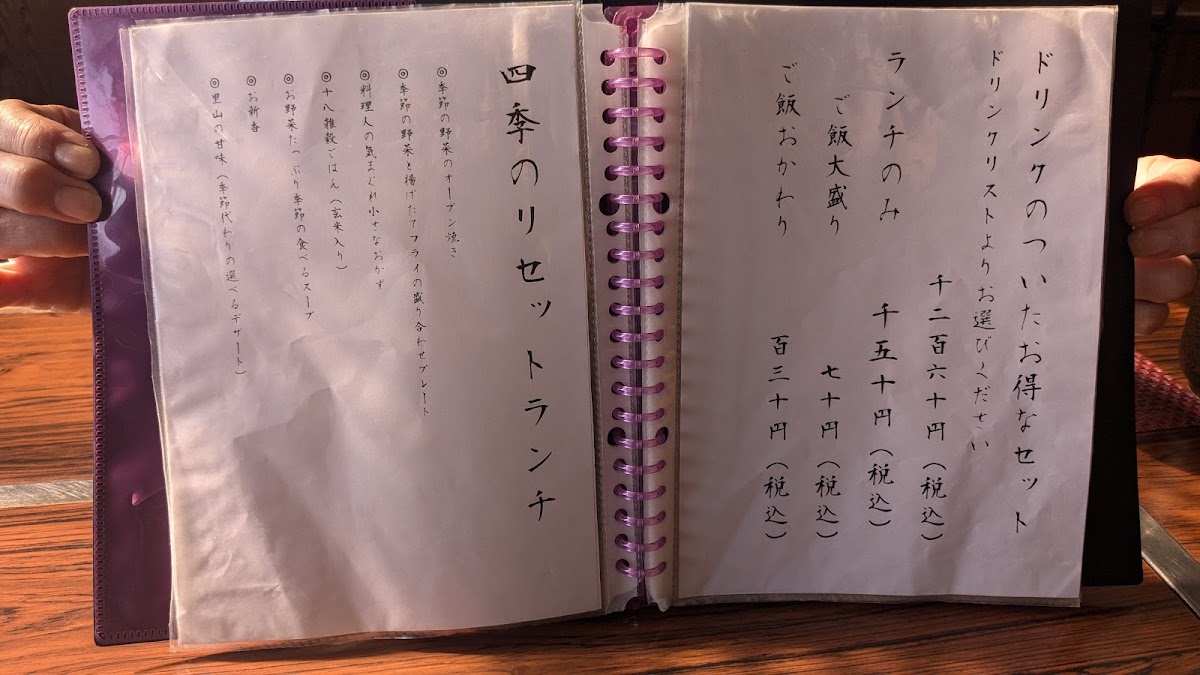 ドリンクのついたお得なセット
ドリンクリストよりお選びください
千二百六十円(税込)
ランチのみ 千五十円(税込)
ご飯大盛り 七十円(税込)
ご飯おかわり 百三十円(税込)
四季のリセットランチ
◎季節の野菜のオーブン焼き
◎季節の野菜と揚げたてフライの盛り合わせプレート
◎料理人の気まぐれ小さなおかず
◎十八雑穀ごはん(玄米入り)
◎お野菜たっぷり季節の食べるスープ
◎お新香
◎里山の甘味(季節代わりの選べるデザート)